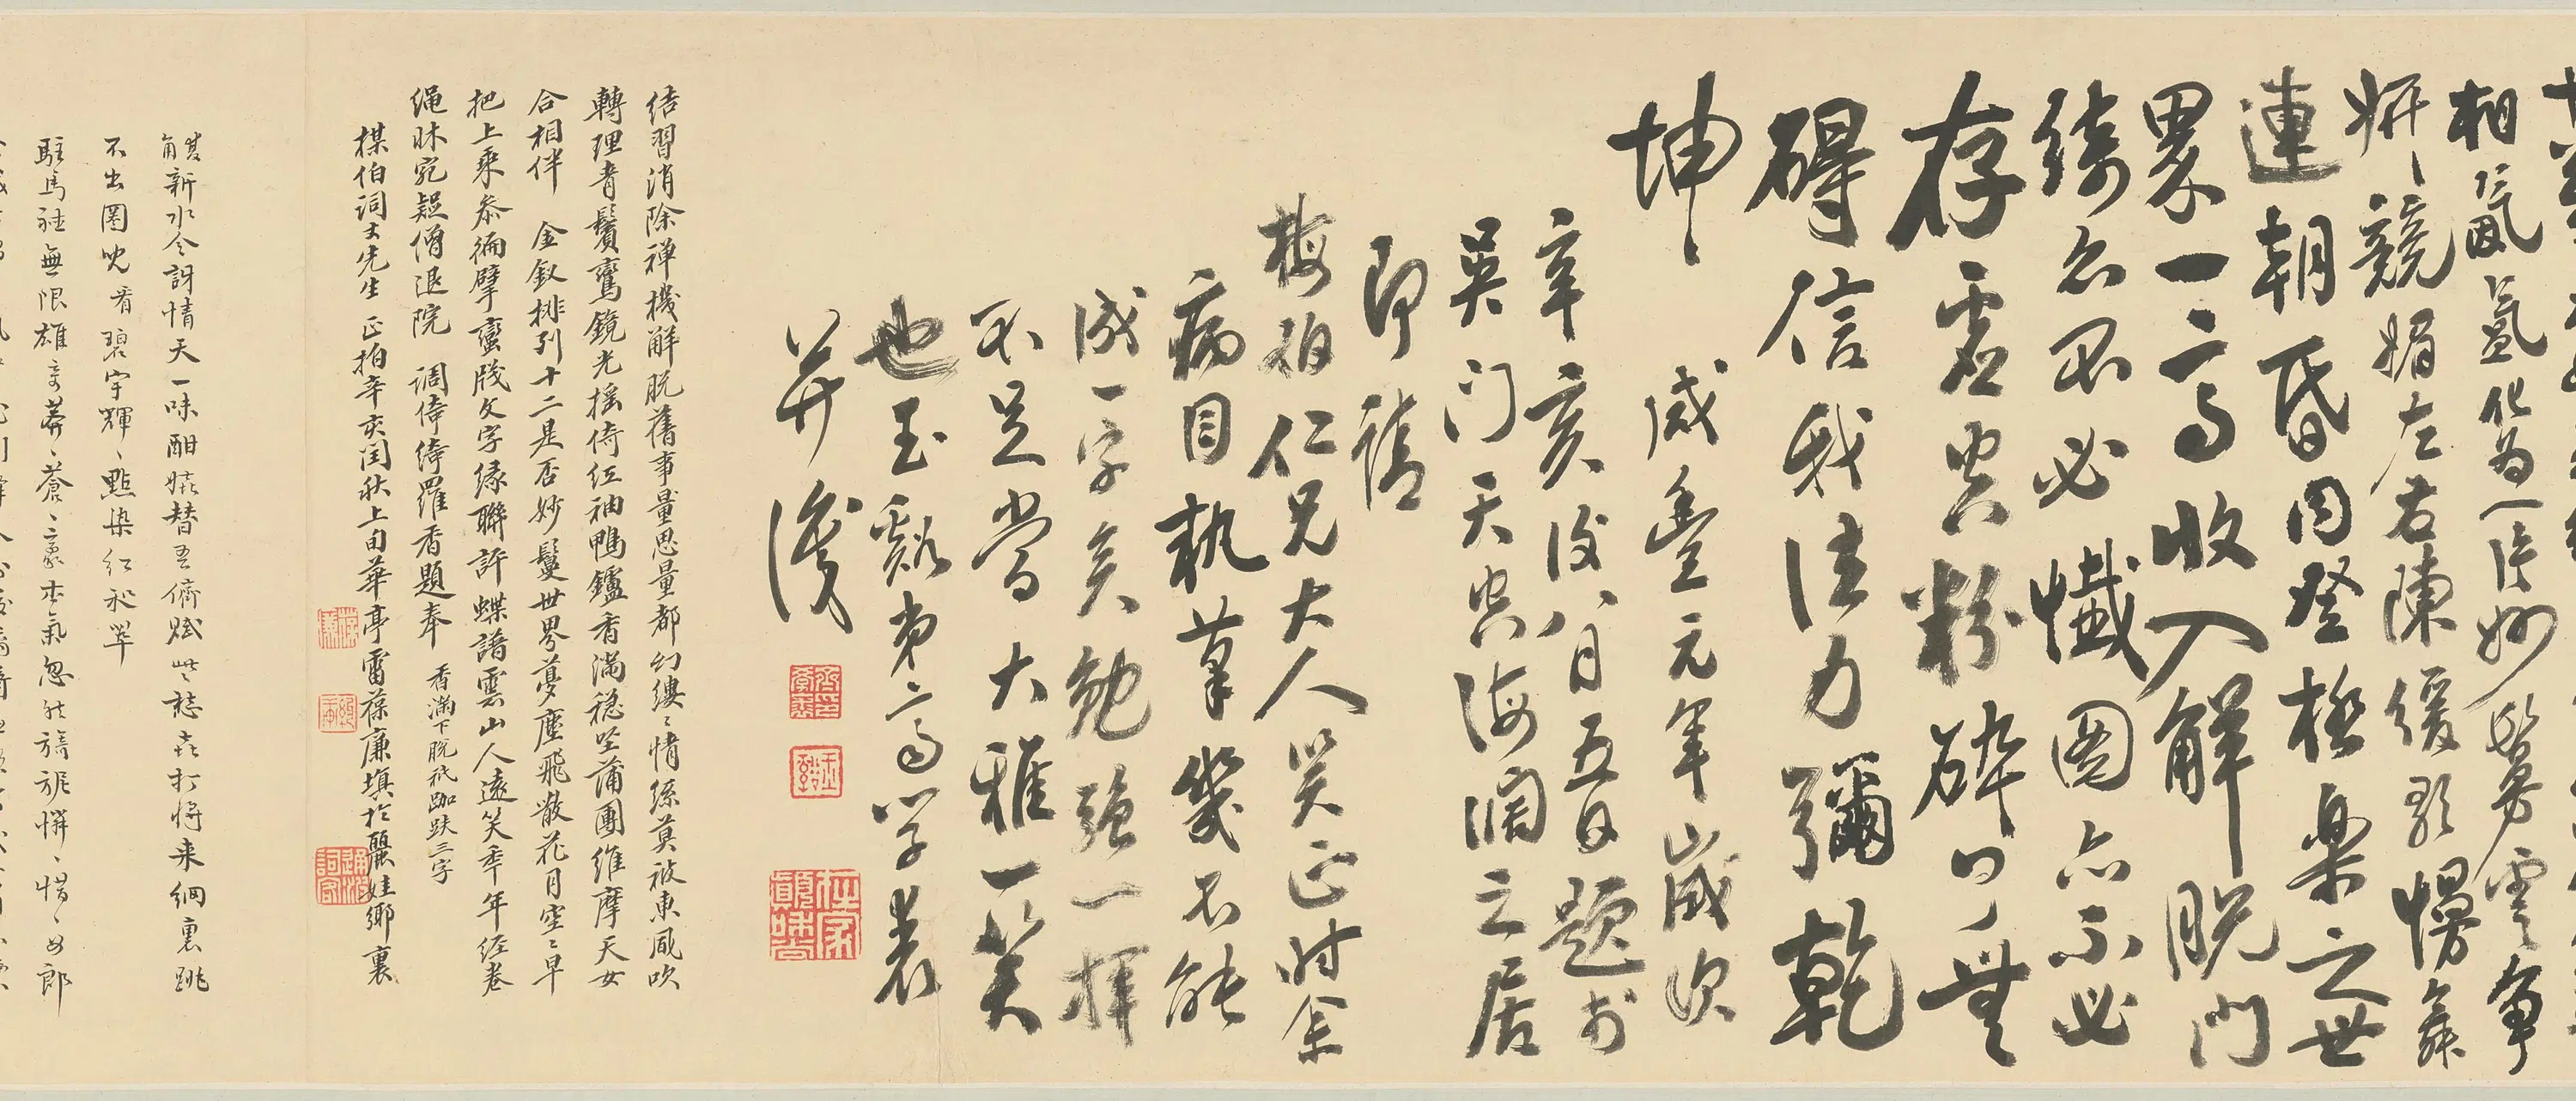 相氤氳化為一片妙鬘雲爭
妍競媚左右陳緩歌慢舞
連朝昏同登極樂之世
界一一收入解脫門
綺色不必懺圖亦不必
存虛空粉碎了無
礙信我法力彌乾
坤
咸豐元年歲次
辛亥後八月五日題於
吳門天空海闊之居
即請
梅伯仁兄大人笑正時余
病目執筆幾不能
成一字矣勉強一揮
不足當大雅一笑
也玉谿弟
并識
結習消除禪機解脫舊事量思量都幻縷縷情絲莫被東風吹
轉理青鬢鸞鏡光搖倚紅袖鴨鑪香滿穩坐蒲團維摩天女
合相伴 金釵排列十二是否妙鬘世界夢塵飛散花月空空早
把上乘參徧擘蠻牋文字緣聯許蝶譜雲山人遠笑年年經卷
繩牀宛疑僧退院 調倚綺羅香題奉 香滿下脫祇跏趺三字
楳伯詞丈先生正拍辛亥閏秋上旬華亭雷葆廉填於麗娃鄉裏
新水令訝情天一味酣嬉替吾儕賦此愁喜打將來綱裏跳
不出圈兒看碧宇輝輝點染紅衫翠
駐馬聽無限雄奇莽莽蒼蒼豪士氣忽然旖旎惺惺惜惜女郎